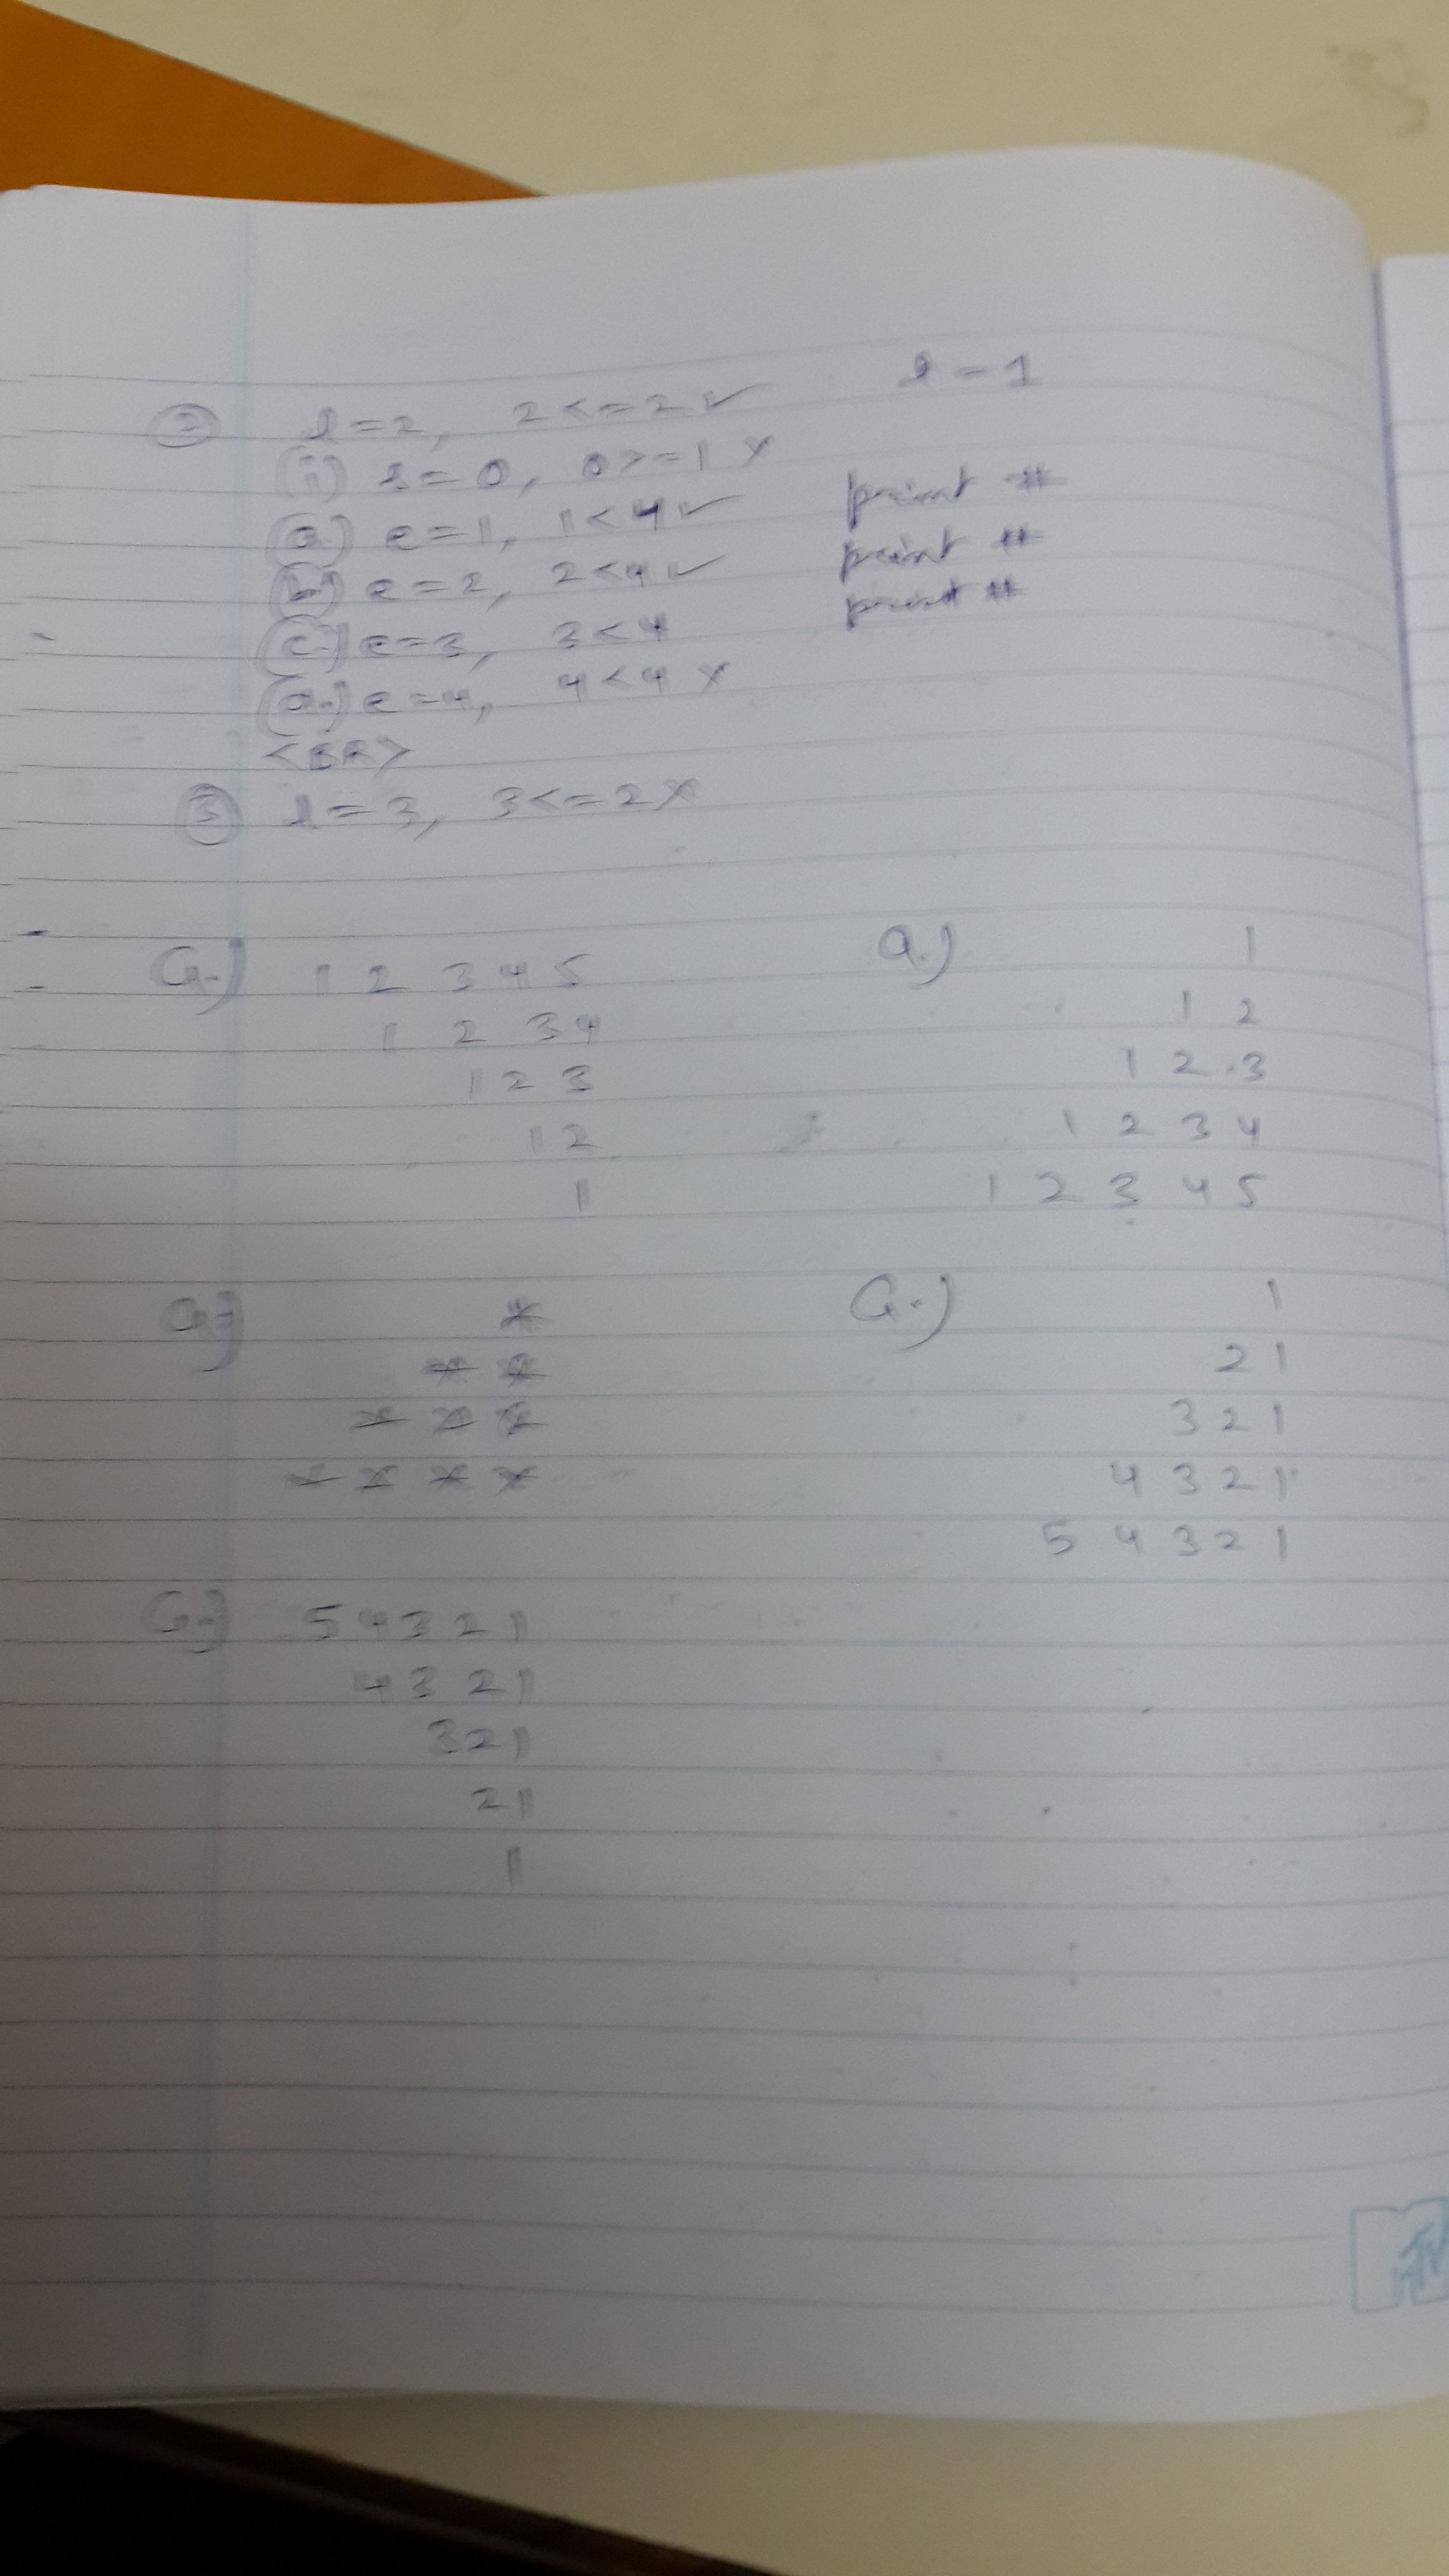 l - 1
② l = 2, 2 <= 2 ✓
(ii) s = 0, 0 >= 1 ×
(a.) e = 1, 1 < 4 ✓ print #
(b.) e = 2, 2 < 4 ✓ print #
(c.) e = 3, 3 < 4 print #
(d.) e = 4, 4 < 4 ×
<BR>
③ l = 3, 3 <= 2 ×
Q.) 1 2 3 4 5
1 2 3 4
1 2 3
1 2
1
Q.) 1
1 2
1 2 3
1 2 3 4
1 2 3 4 5
Q.) *
* *
* * *
* * * *
Q.) 1
2 1
3 2 1
4 3 2 1
5 4 3 2 1
Q.) 5 4 3 2 1
4 3 2 1
3 2 1
2 1
1